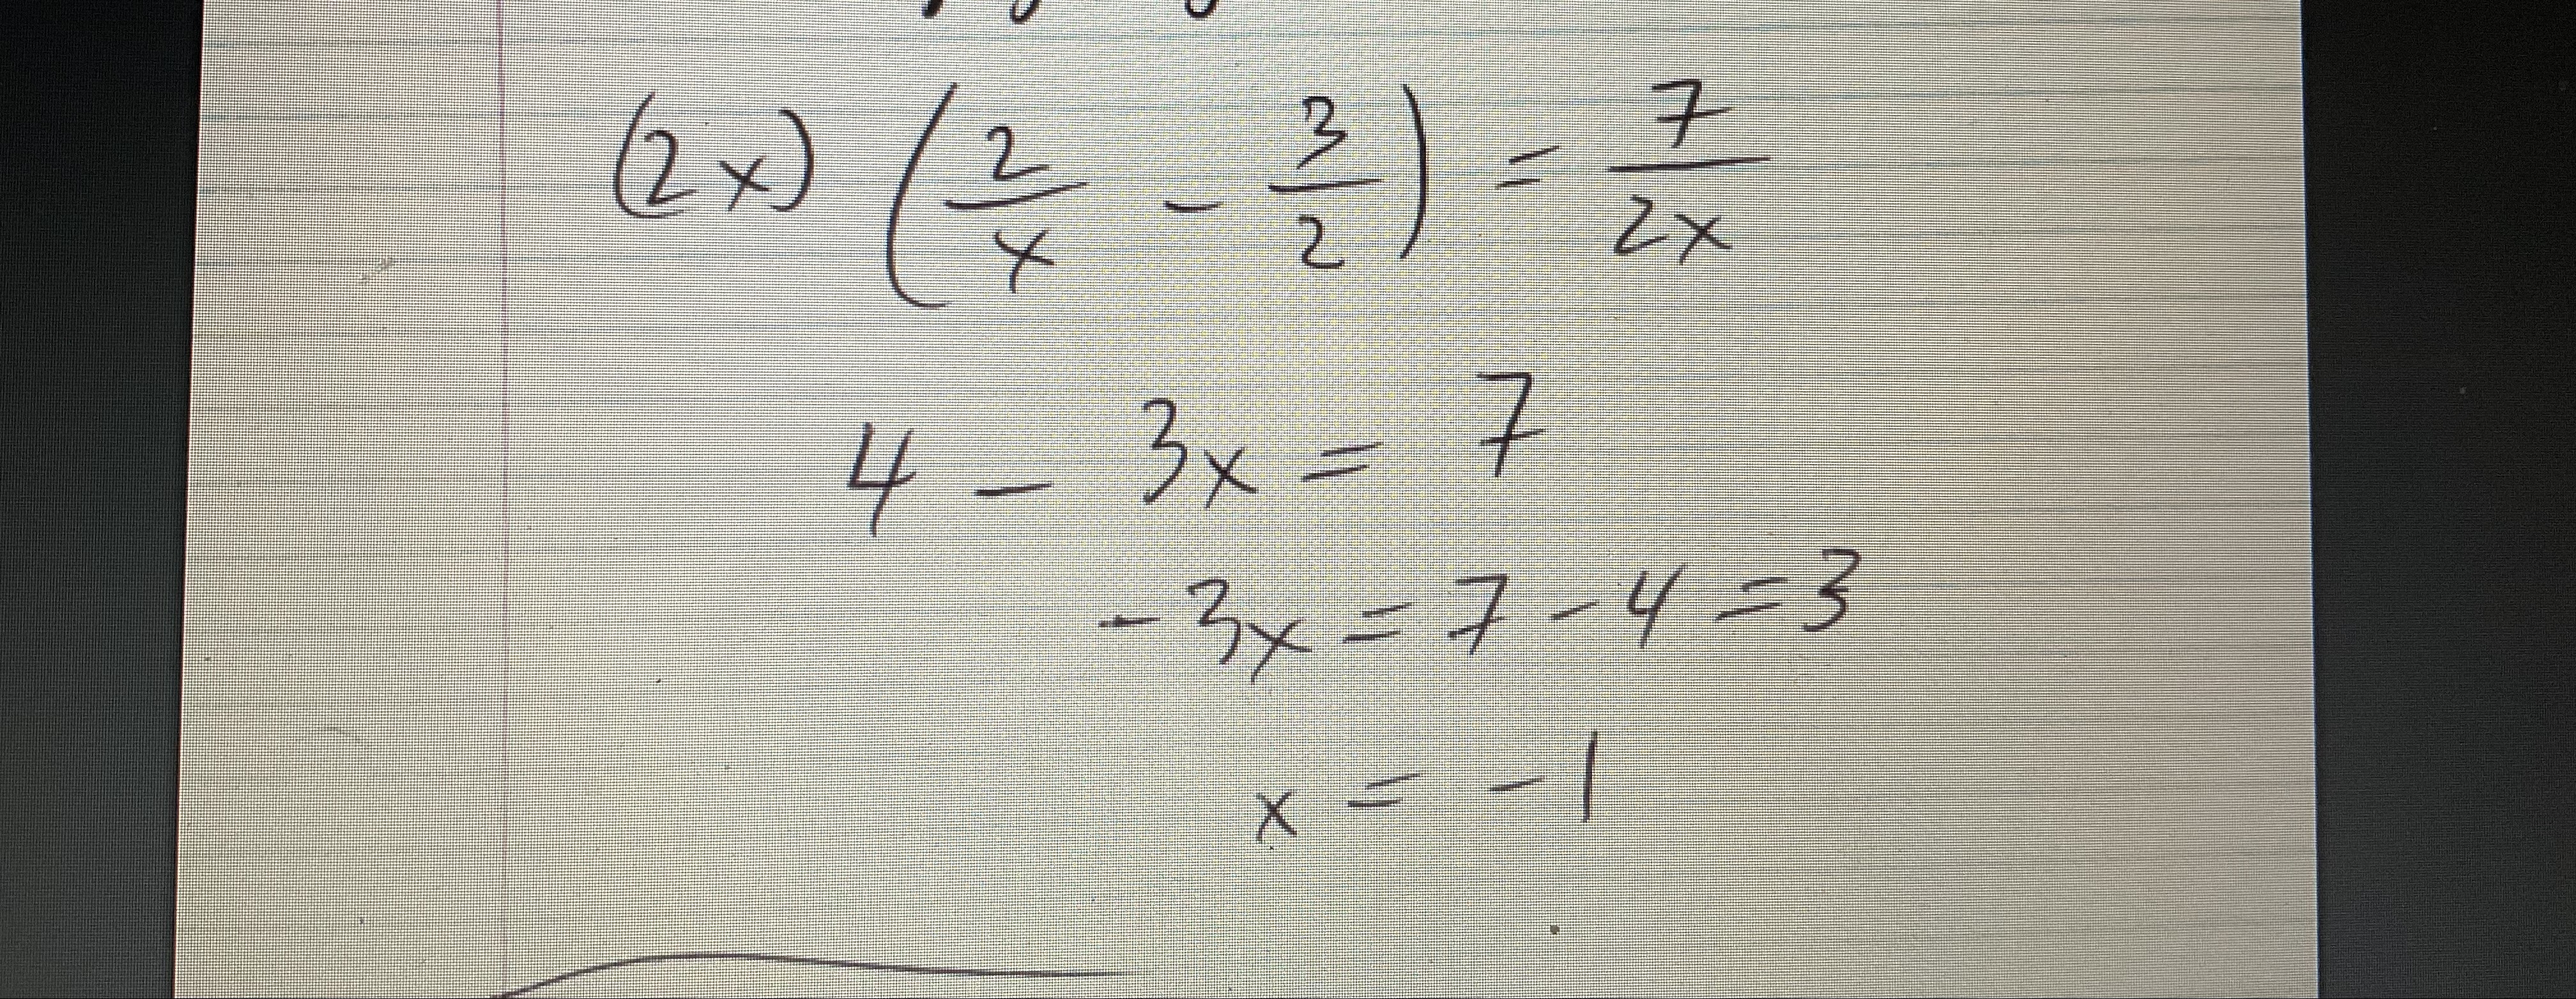 (2x) (2/x - 3/2) = 7/2x
4 - 3x = 7
-3x = 7 - 4 = 3
x = -1